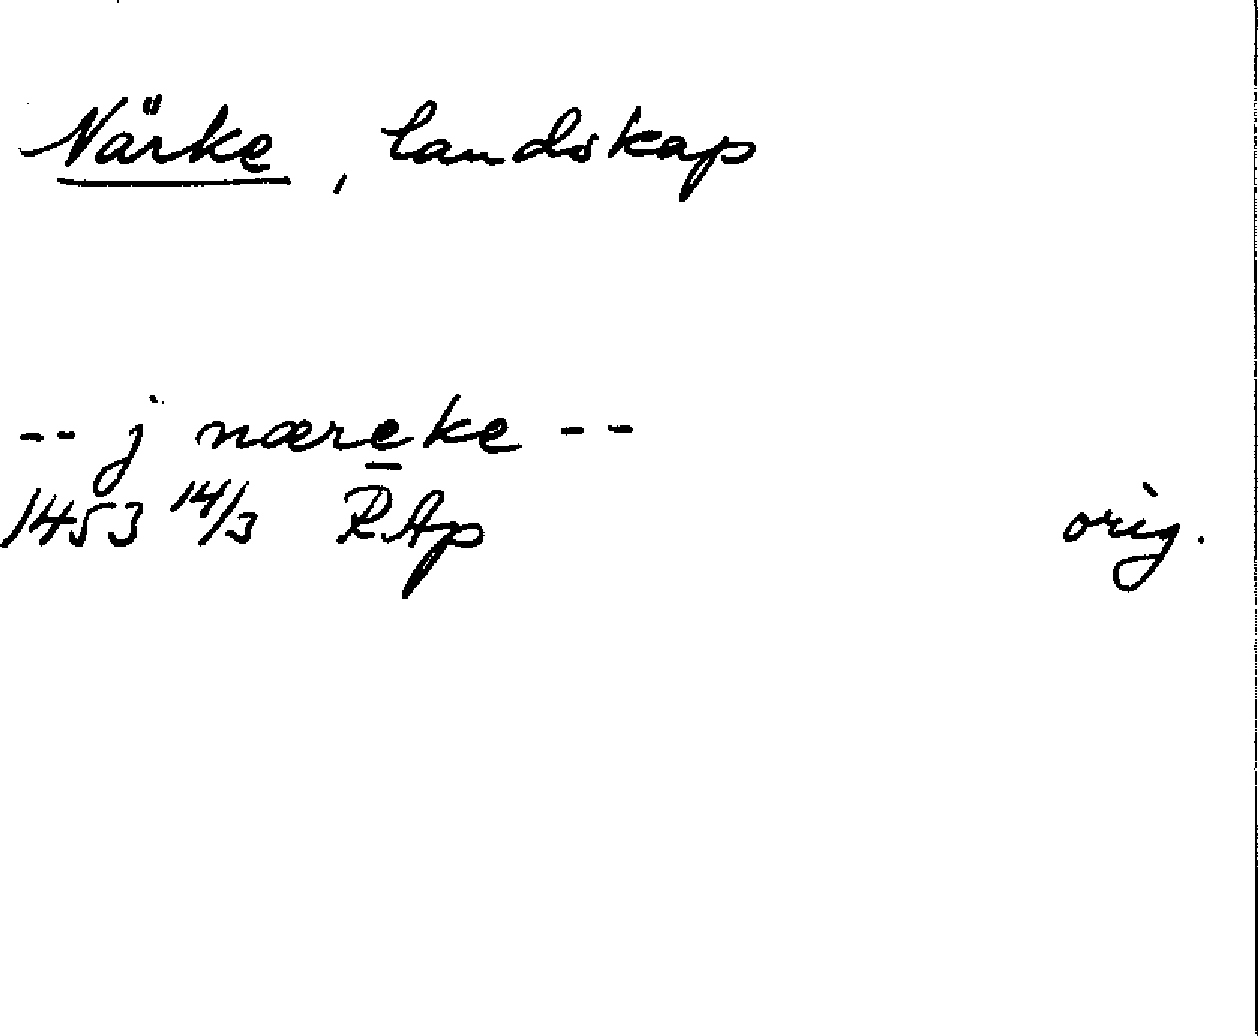 Närke, landskap
-- j næreke --
1453 14/3 RAp orig.